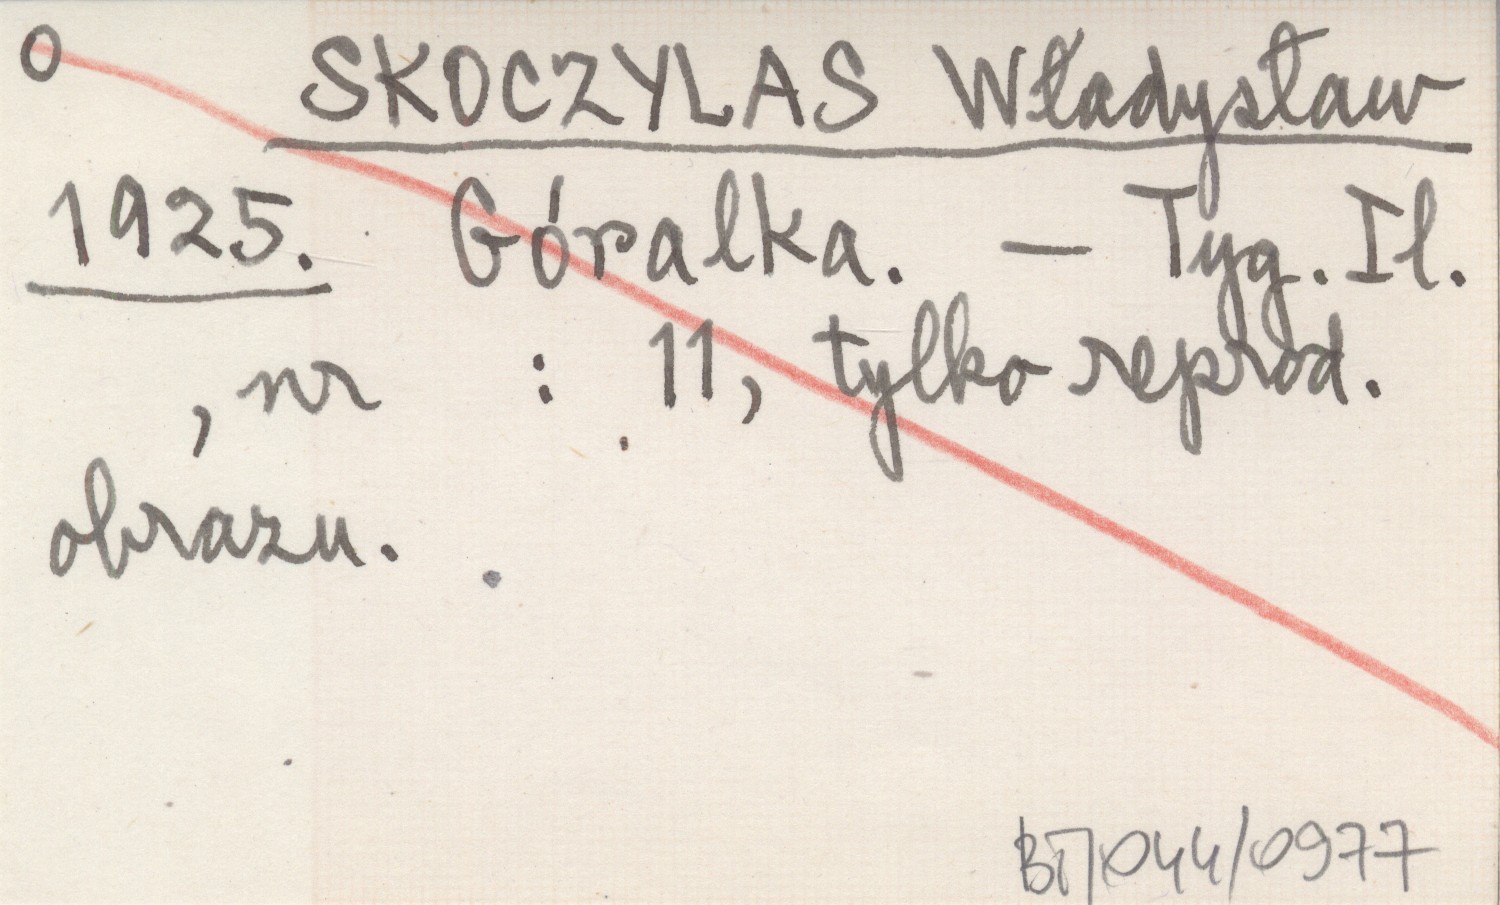 O SKOCZYLAS Władysław
1925. Góralka. — Tyg. Il.
, nr : 11, tylko reprod.
obrazu.
BT/044/0977